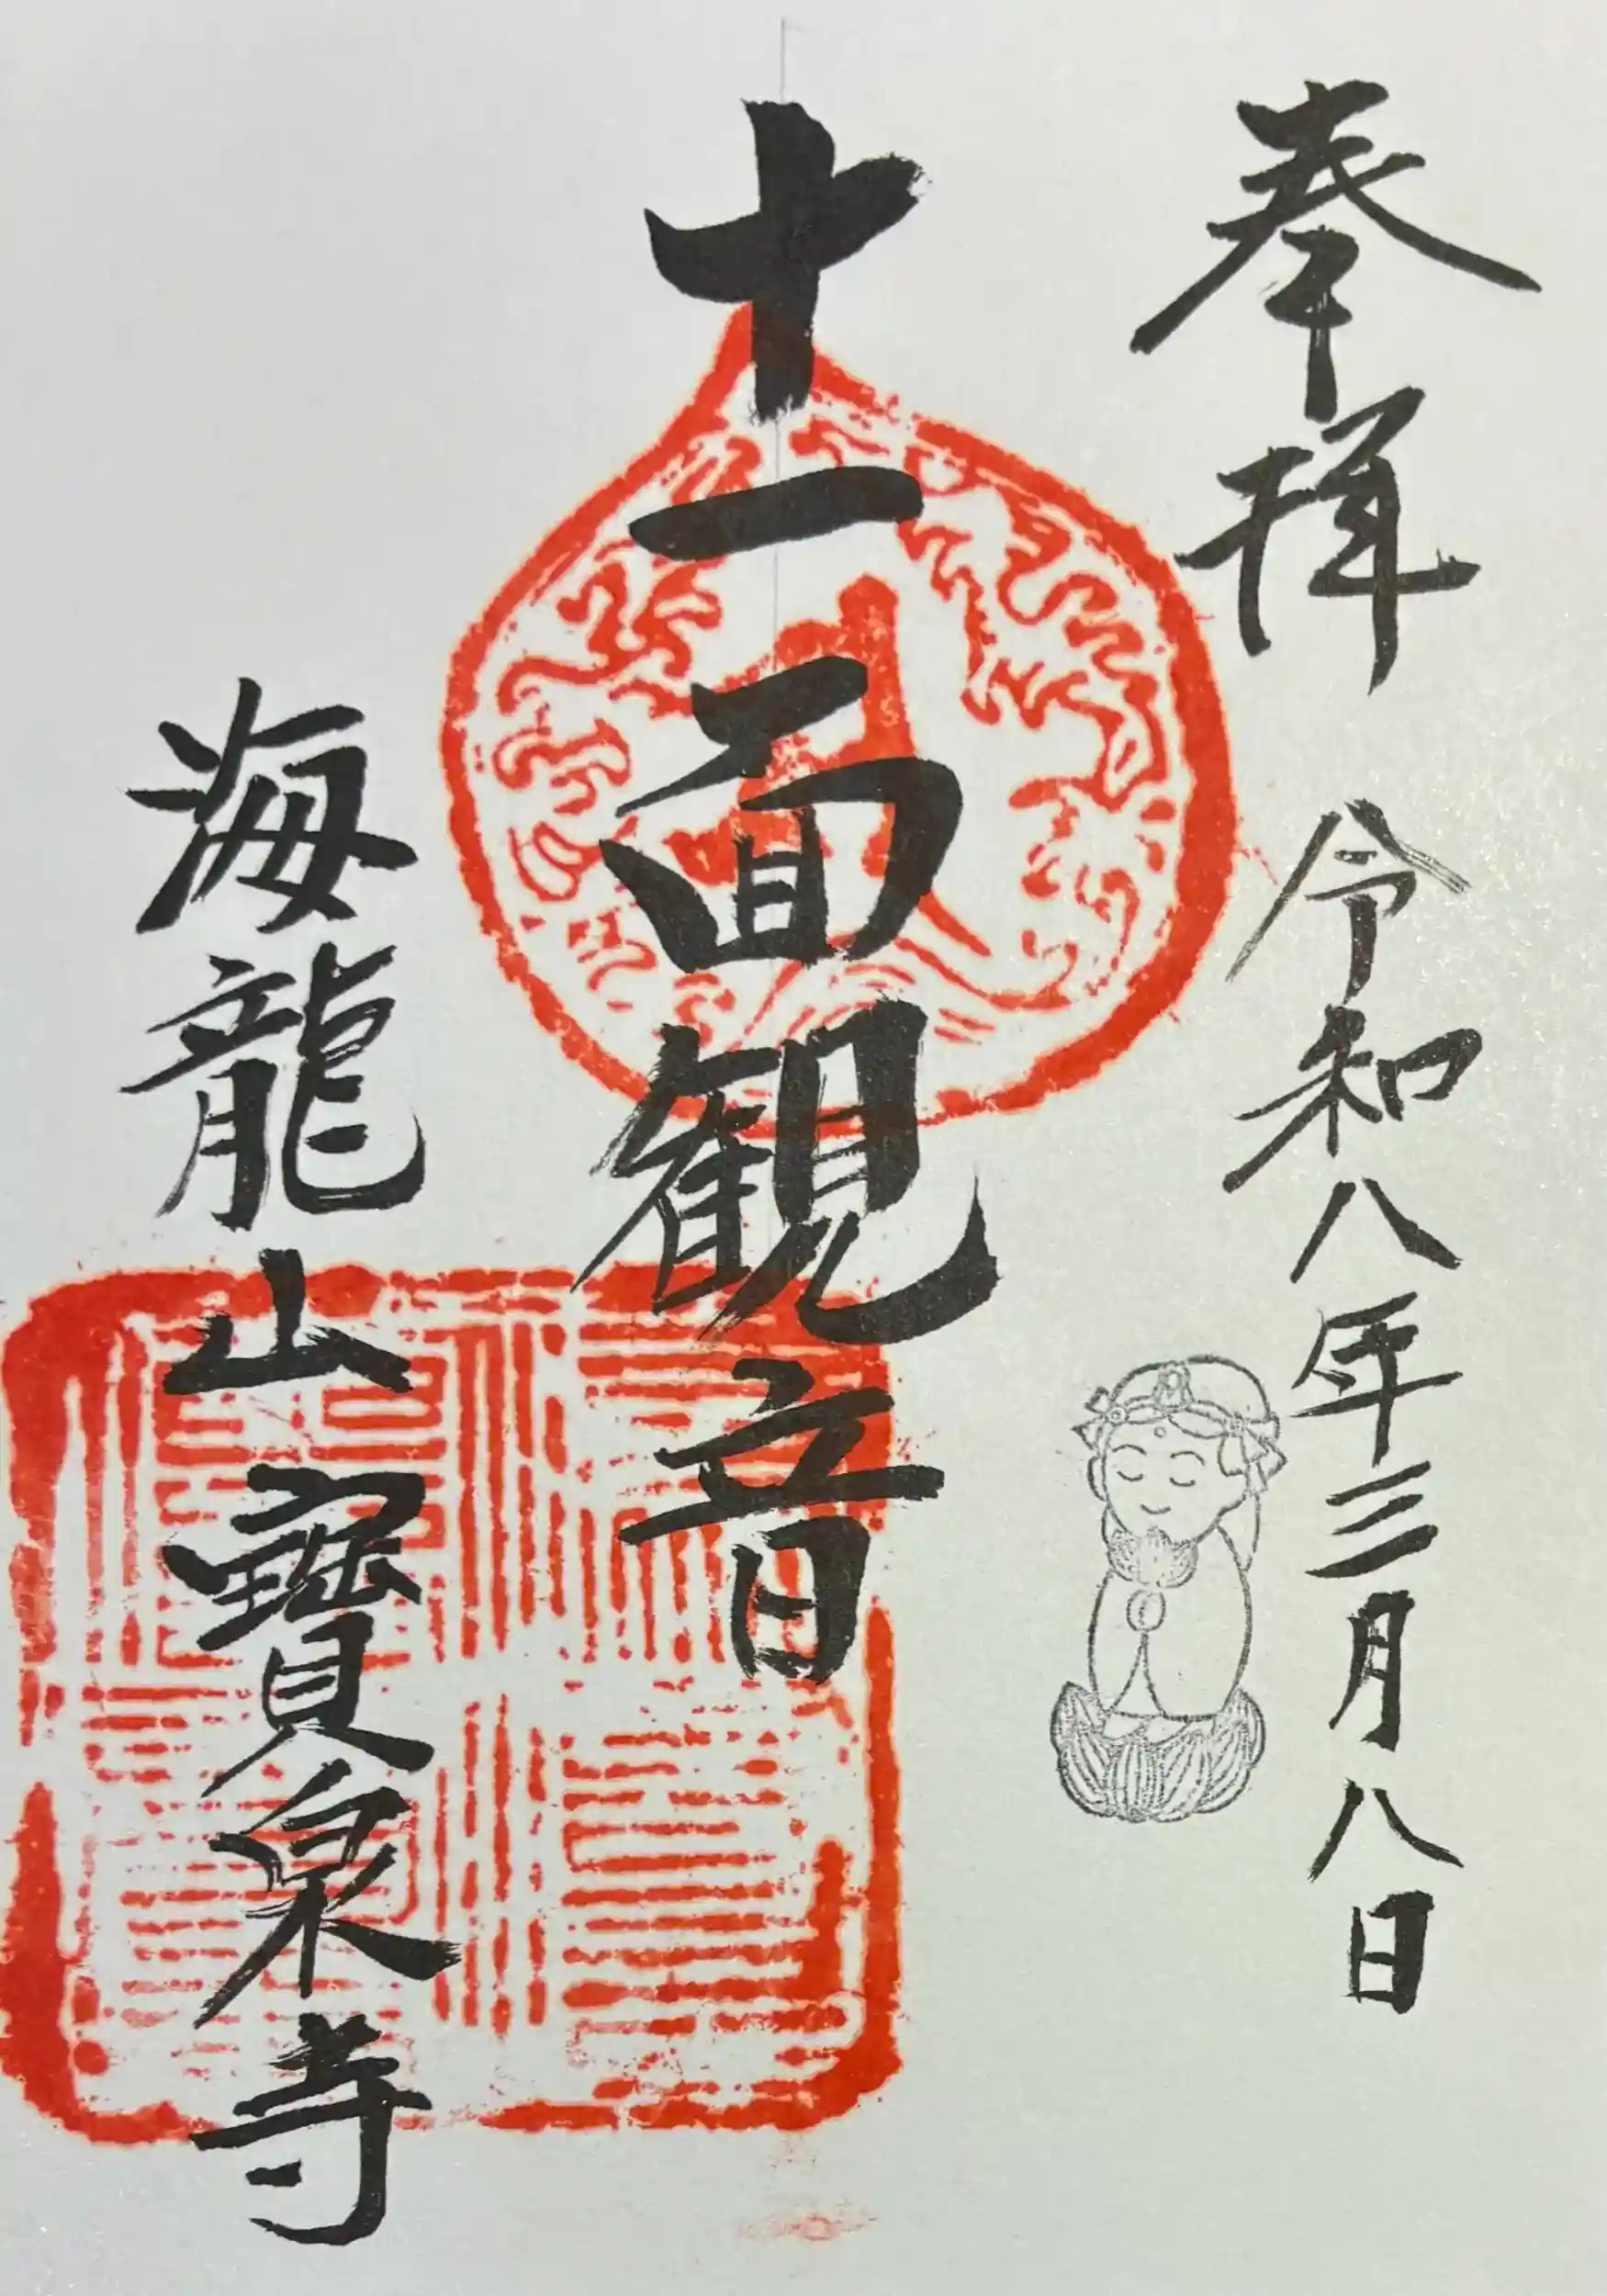 奉拝 令和八年三月八日
十一面観音
海龍山寶泉寺